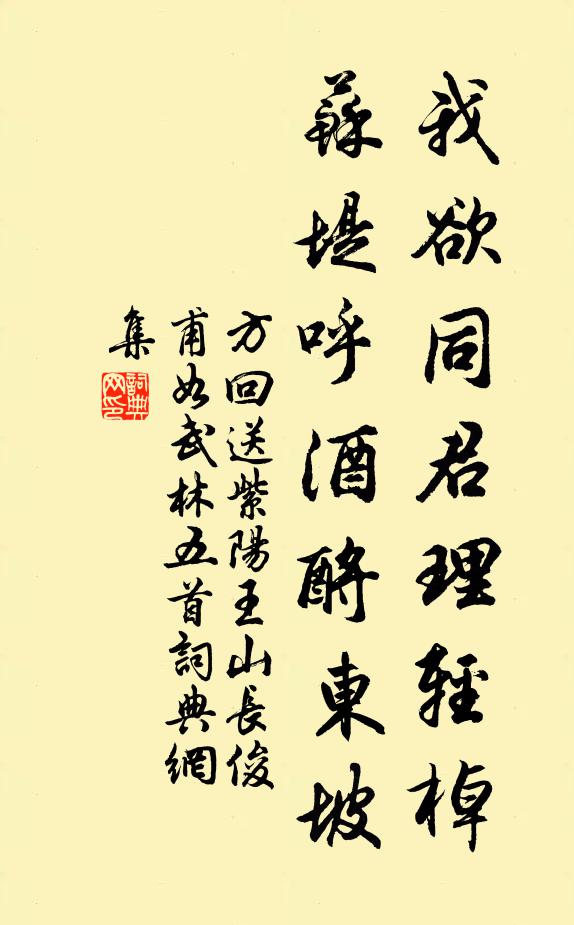 我欲同君理輕棹
蘇堤呼酒酹東坡
方回送紫陽王山長俊
甫如武林五首詞典網
集
詞典网印